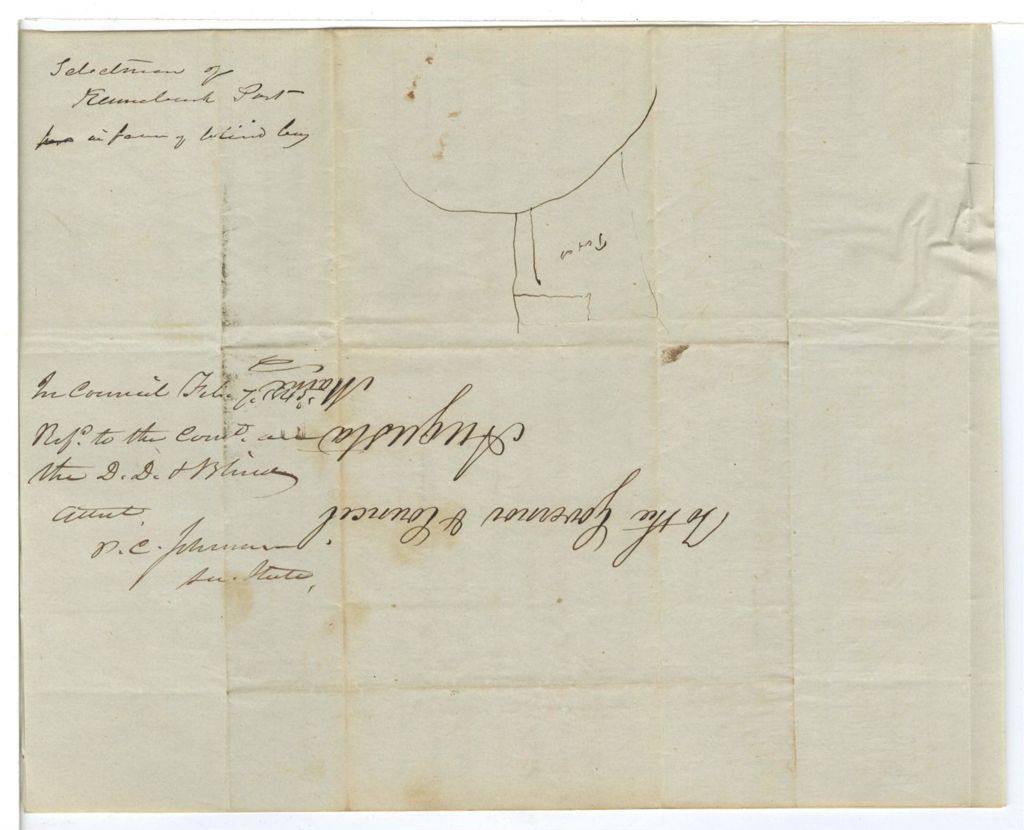 Selectmen of
Kennebunk Port
in favor of blind boy
In Council Feb. 7.
Ref.d to the Comt. on
the D. D. & Blind
attest
P. C. Johnson
Sec. State,
To the Governor & Council
Augusta
Maine